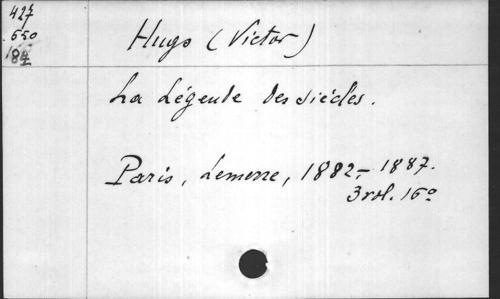 427
550
184
Hugo (Victor)
La Légende des siècles.
Paris, Lemerre, 1882-1887.
3 vol. 16º